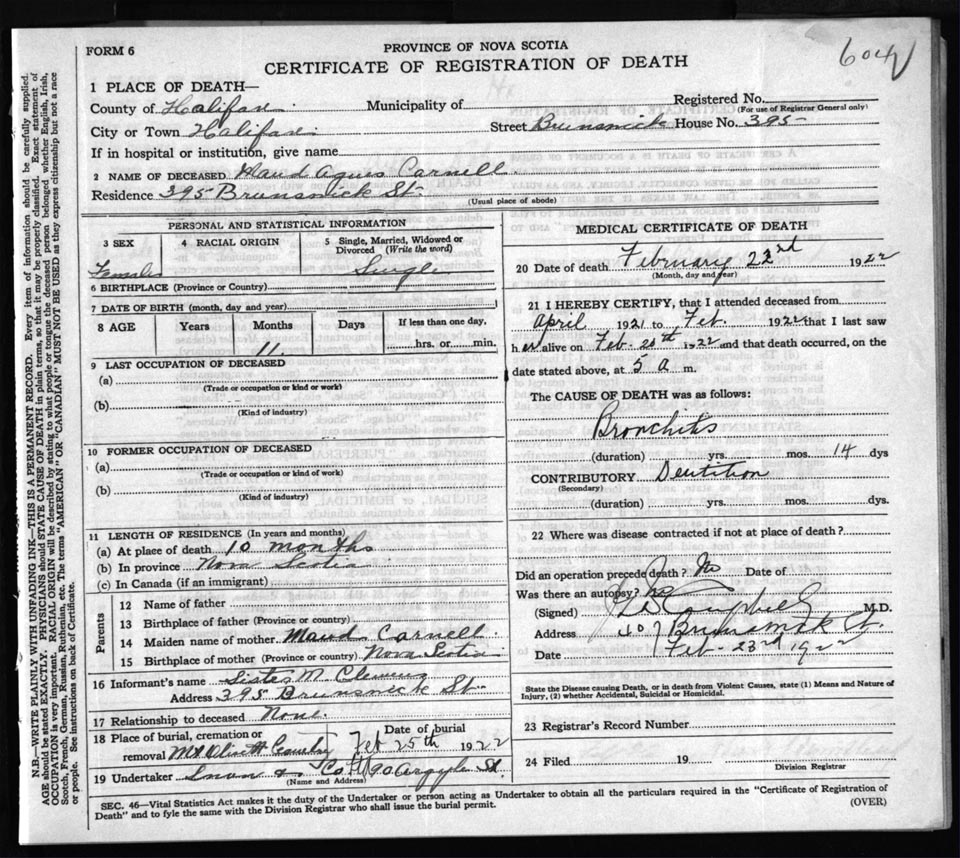 FORM 6
PROVINCE OF NOVA SCOTIA
CERTIFICATE OF REGISTRATION OF DEATH
604
1 PLACE OF DEATH—
County of Halifax Municipality of Registered No.
(For use of Registrar General only)
City or Town Halifax Street Brunswick House No. 395
If in hospital or institution, give name
2 NAME OF DECEASED Maud Agnes Carnell
Residence 395 Brunswick St.
(Usual place of abode)
PERSONAL AND STATISTICAL INFORMATION
3 SEX 4 RACIAL ORIGIN 5 Single, Married, Widowed or Divorced (Write the word)
Female Single
6 BIRTHPLACE (Province or Country)
7 DATE OF BIRTH (month, day and year)
8 AGE Years Months Days If less than one day.
11 hrs. or min.
9 LAST OCCUPATION OF DECEASED
(a)
(Trade or occupation or kind or work)
(b)
(Kind of industry)
10 FORMER OCCUPATION OF DECEASED
(a)
(Trade or occupation or kind of work)
(b)
(Kind of industry)
11 LENGTH OF RESIDENCE (In years and months)
(a) At place of death 10 months
(b) In province Nova Scotia
(c) In Canada (if an immigrant)
Parents
12 Name of father
13 Birthplace of father (Province or country)
14 Maiden name of mother Maud Carnell
15 Birthplace of mother (Province or country) Nova Scotia
16 Informant's name Sister M.
Address 395 Brunswick St.
17 Relationship to deceased None.
18 Place of burial, cremation or removal Mt Olivett Date of burial Feb 25th 1922
19 Undertaker Snow & Co 90 Argyle St.
(Name and Address)
MEDICAL CERTIFICATE OF DEATH
20 Date of death February 23rd 1922
(Month, day and year)
21 I HEREBY CERTIFY, that I attended deceased from
April 1921 to Feb. 1922 that I last saw
her alive on Feb. 20th 1922 and that death occurred, on the
date stated above, at 5 a m.
The CAUSE OF DEATH was as follows:
Bronchitis
(duration) yrs. mos. 14 dys
CONTRIBUTORY Dentition
(Secondary)
(duration) yrs. mos. dys.
22 Where was disease contracted if not at place of death?
Did an operation precede death? No Date of
Was there an autopsy? No
(Signed) Campbell M.D.
Address 407 Brunswick St.
Date Feb. 23rd 1922
State the Disease causing Death, or in death from Violent Causes, state (1) Means and Nature of
Injury, (2) whether Accidental, Suicidal or Homicidal.
23 Registrar's Record Number
24 Filed 19
Division Registrar
SEC. 46—Vital Statistics Act makes it the duty of the Undertaker or person acting as Undertaker to obtain all the particulars required in the "Certificate of Registration of
Death" and to fyle the same with the Division Registrar who shall issue the burial permit.
(OVER)
N.B.—WRITE PLAINLY WITH UNFADING INK—THIS IS A PERMANENT RECORD. Every item of information should be carefully supplied.
AGE should be stated EXACTLY. PHYSICIANS should STATE CAUSE OF DEATH in plain terms, so that it may be properly classified. Exact statement of
OCCUPATION is very important. RACIAL ORIGIN will be described by stating to what people or tongue the deceased person belonged, whether English, Irish,
Scotch, French, German, Russian, Ruthenian, etc. The terms "AMERICAN" OR "CANADIAN" MUST NOT BE USED as they express citizenship but not a race
or people. See instructions on back of Certificate.